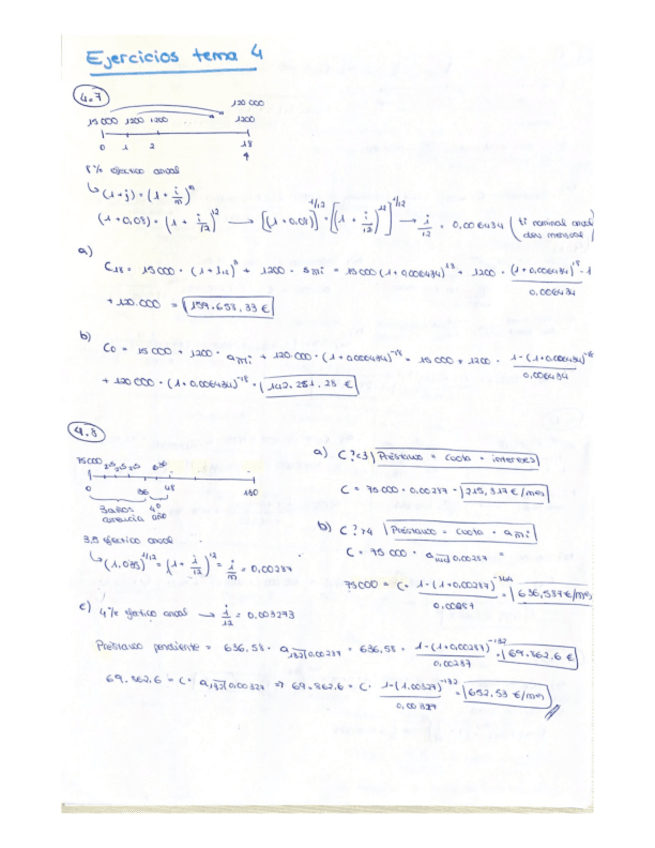 Ejercicios tema 4
4.7
120 000
15 000 1200 1200 ..... 1200
0 1 2 18
8% efectivo anual
↳ (1+j) = (1 + i/m)^m
(1 + 0,08) = (1 + i/12)^12 → [(1+0,08)]^1/12 = [(1 + i/12)^12]^1/12 → i/12 = 0,006434 (ti nominal anual
mensual)
a)
C18 = 15 000 · (1 + )^ + 1200 · s i = 15 000 (1 + 0,006434)^18 + 1200 · (1 + 0,006434)^18 - 1 / 0,006434
+ 120.000 = 159.658,33 €
b)
C0 = 15 000 + 1200 · a i + 120 000 · (1 + 0,006434)^-18 = 15 000 + 1200 · 1 - (1 + 0,006434)^-18 / 0,006434
+ 120 000 · (1 + 0,006434)^-18 = 142.251,28 €
4.8
75 000
0 36 48 180
3 años carencia 4º año
3,5 efectivo anual
↳ (1,035)^1/12 = (1 + i/12)^12 = i/m = 0,00287
a) C? <3 | Préstamo = cuota · intereses
C = 75 000 · 0,00287 = 215,317 €/mes
b) C? >4 | Préstamo = cuota · a i
C = 75 000 · a 0,00287 =
75000 = C · 1 - (1 + 0,00287)^-144 / 0,00287 = 636,587 €/mes
c) 4% efectivo anual → i/12 = 0,003273
Préstamo pendiente = 636,58 · a 132 0,00287 = 636,58 · 1 - (1 + 0,00287)^-132 / 0,00287 = 69.862,6 €
69.862,6 = C · a 132 0,00327 ⇒ 69.862,6 = C · 1 - (1,00327)^-132 / 0,00327 = 652,53 €/mes